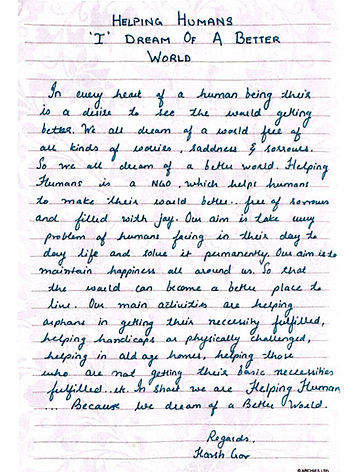 HELPING HUMANS
'I' DREAM OF A BETTER
WORLD
In every heart of a human being their
is a desire to see the world getting
better. We all dream of a world free of
all kinds of worries, saddness & sorrows.
So we all dream of a better world. Helping
Humans is a NGO, which helps humans
to make their world better.. free of sorrows
and filled with joy. Our aim is take every
problem of humans facing in their day to
day life and solve it permanently. Our aim is to
maintain happiness all around us. So that
the world can become a better place to
live. Our main activities are helping
orphans in getting their necessity fulfilled,
helping handicaps or physically challenged,
helping in old age homes, helping those
who are not getting their basic necessities
fulfilled..etc. In short we are Helping Humans
... Because We dream of a Better World.
Regards,
Harsh Gor
© ARCHIES LTD.